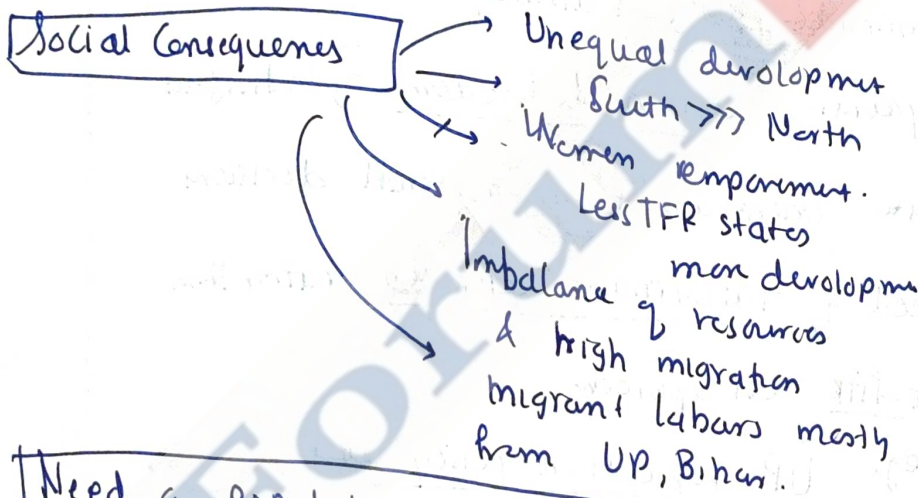 Social Consequenes
Unequal devolopmet
South >>> North
Women empowerment.
Less TFR states
more devolopme
Imbalane of resources
& high migration
migrant labours mostly
from UP, Bihar.
Need
Forum